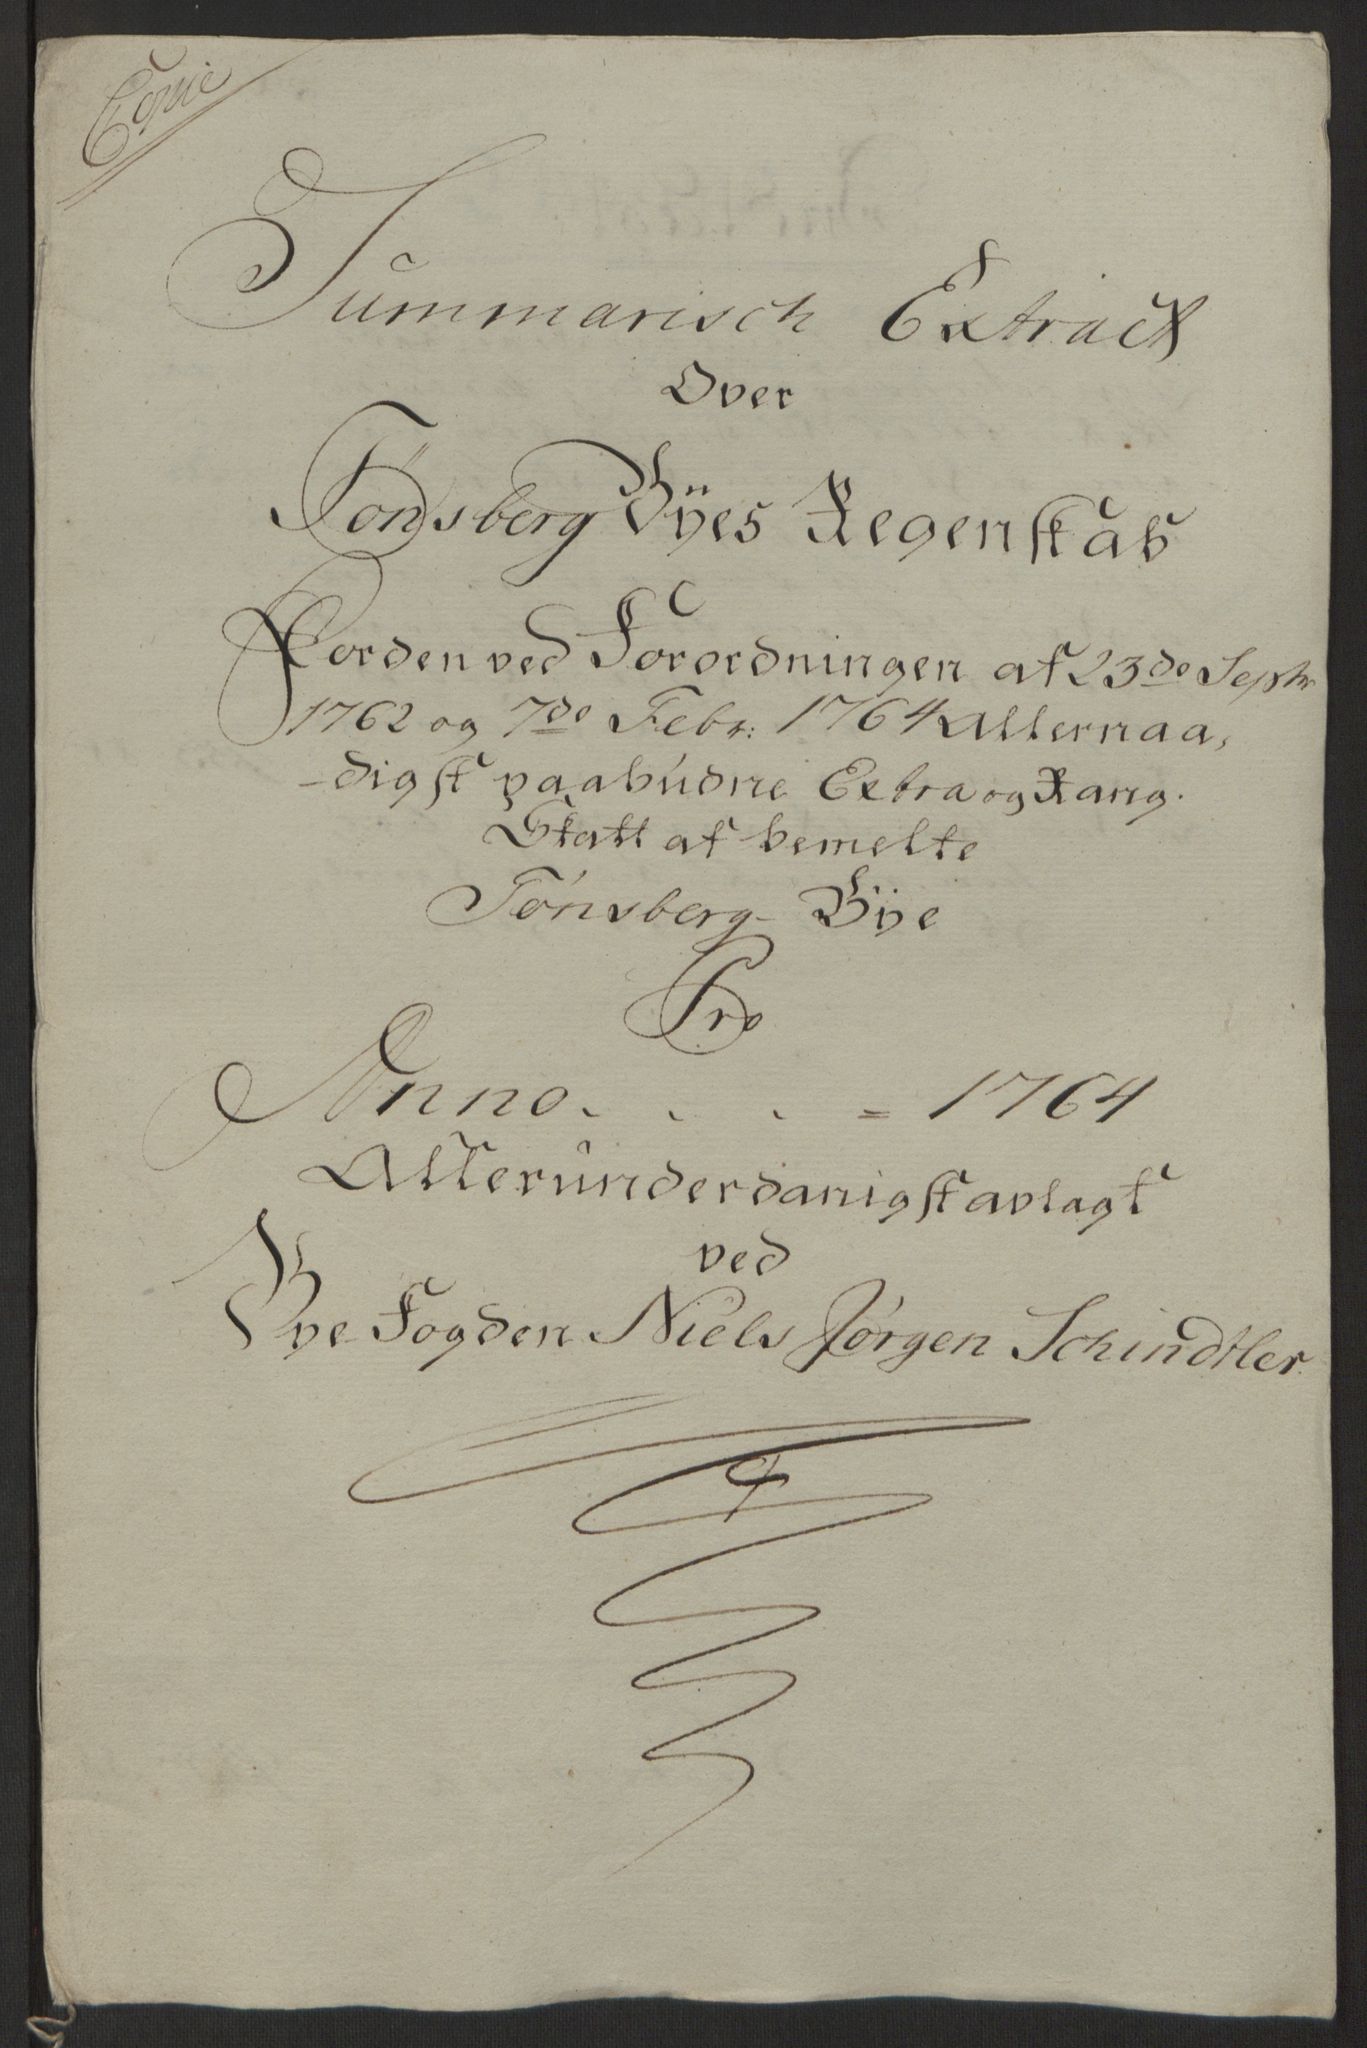 Copie
Summarisch Extract
Over
Tönsberg Byes Regenskab
For den ved Forordningen af 23de Septr
1762 og 7de Febr: 1764 Allernaa,
-digst paabudne Extra og Rang.
Skatt af bemelte
Tønsberg Bÿe
Pro
Anno . . . = 1764
Allerunderdanigst avlagt
ved
Bye Fogden Niels Jørgen Schindtler